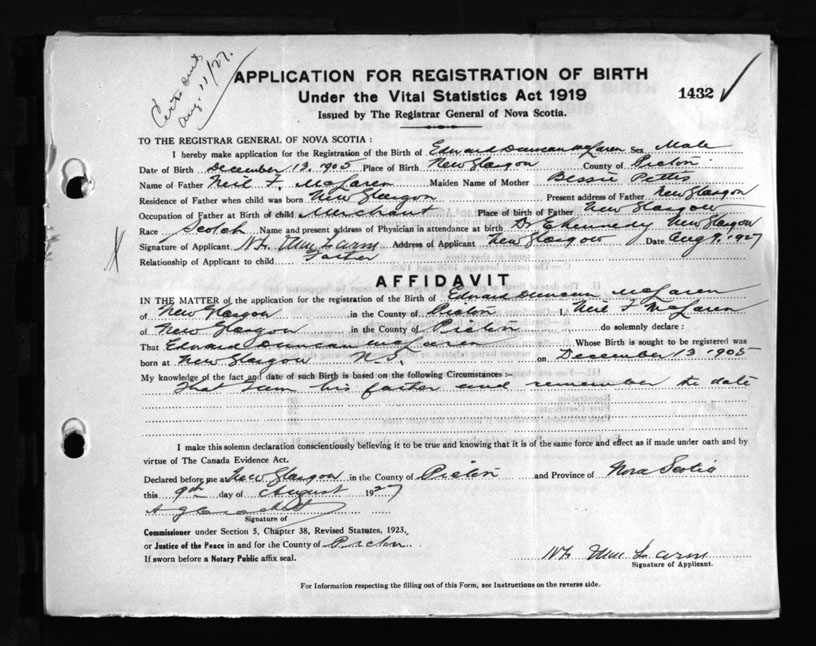 Aug. 11/27.
APPLICATION FOR REGISTRATION OF BIRTH
Under the Vital Statistics Act 1919
1432 ✓
Issued by The Registrar General of Nova Scotia.
TO THE REGISTRAR GENERAL OF NOVA SCOTIA :
I hereby make application for the Registration of the Birth of Edward Duncan McLaren Sex Male
Date of Birth December 13. 1905 Place of Birth New Glasgow County of Pictou
Name of Father Neil F. McLaren Maiden Name of Mother Bessie
Residence of Father when child was born New Glasgow Present address of Father New Glasgow
Occupation of Father at Birth of child Merchant Place of birth of Father New Glasgow
Race Scotch Name and present address of Physician in attendance at birth Dr E Kennedy New Glasgow
Signature of Applicant Address of Applicant New Glasgow Date Aug 9. 1927
Relationship of Applicant to child Father
AFFIDAVIT
IN THE MATTER of the application for the registration of the Birth of Edward Duncan McLaren
of New Glasgow in the County of Pictou I, Neil F. McLaren
of New Glasgow in the County of Pictou do solemnly declare :
That Edward Duncan McLaren Whose Birth is sought to be registered was
born at New Glasgow N.S. on December 13 1905
My knowledge of the fact and date of such Birth is based on the following Circumstances :-
That I am his father and remember the date
I make this solemn declaration conscientiously believing it to be true and knowing that it is of the same force and effect as if made under oath and by
virtue of The Canada Evidence Act.
Declared before me at New Glasgow in the County of Pictou and Province of Nova Scotia
this 9th day of August 1927
Signature of
Commissioner under Section 5, Chapter 38, Revised Statutes, 1923,
or Justice of the Peace in and for the County of Pictou
If sworn before a Notary Public affix seal.
Signature of Applicant.
For Information respecting the filling out of this Form, see Instructions on the reverse side.